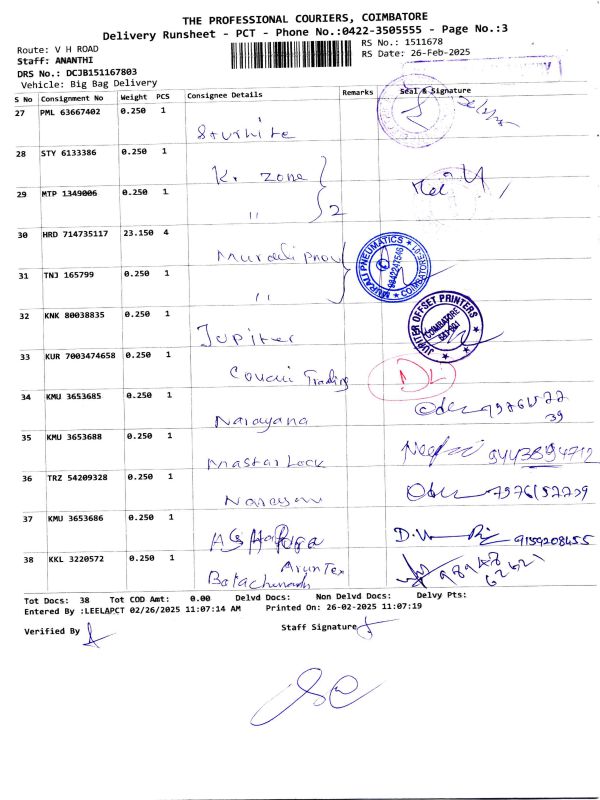 THE PROFESSIONAL COURIERS, COIMBATORE
Delivery Runsheet - PCT - Phone No.:0422-3505555 - Page No.:3
Route: V H ROAD
RS No.: 1511678
Staff: ANANTHI
RS Date: 26-Feb-2025
DRS No.: DCJB151167803
Vehicle: Big Bag Delivery
S No Consignment No Weight PCS Consignee Details Remarks Seal & Signature
27 PML 63667402 0.250 1
28 STY 6133386 0.250 1
K. Zone
29 MTP 1349006 0.250 1
" 2
30 HRD 714735117 23.150 4
MURALI PNEUMATICS
9842247546
COIMBATORE
31 TNJ 165799 0.250 1
"
32 KNK 80038835 0.250 1
Jupiter
JUPITER OFFSET PRINTERS
COIMBATORE
33 KUR 7003474658 1
Trading DL
34 KMU 3653685 0.250 1
Narayana
39
35 KMU 3653688 0.250 1
Mastar Lock 9443894712
36 TRZ 54209328 0.250 1
Narayan
37 KMU 3653686 0.250 1
9159208455
38 KKL 3220572 0.250 1
Arun Tex
Tot Docs: 38 Tot COD Amt: 0.00 Delvd Docs: Non Delvd Docs: Delvy Pts:
Entered By :LEELAPCT 02/26/2025 11:07:14 AM Printed On: 26-02-2025 11:07:19
Verified By
Staff Signature